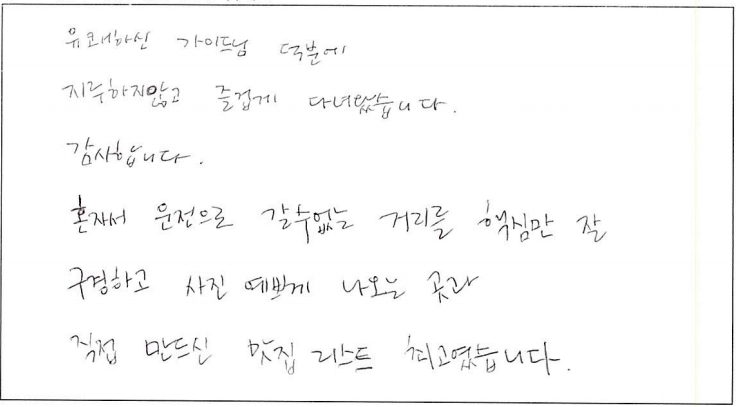 유쾌하신 가이드님 덕분에
지루하지않고 즐겁게 다녀왔습니다.
감사합니다.
혼자서 운전으로 갈수없는 거리를 핵심만 잘
구경하고 사진 예쁘게 나오는 곳과
직접 만드신 맛집 리스트 최고였습니다.